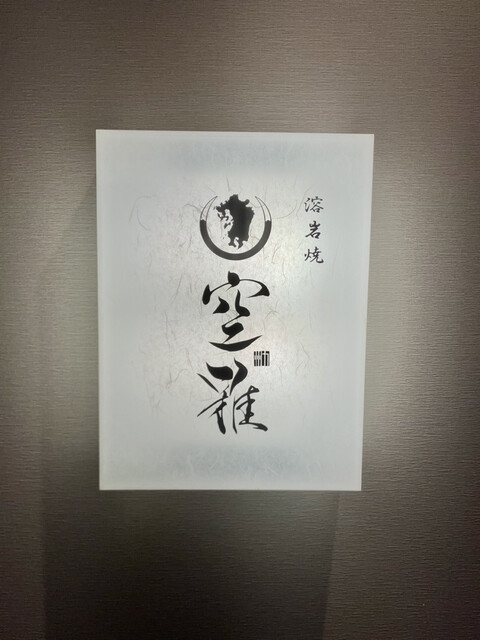 溶岩焼
空雅